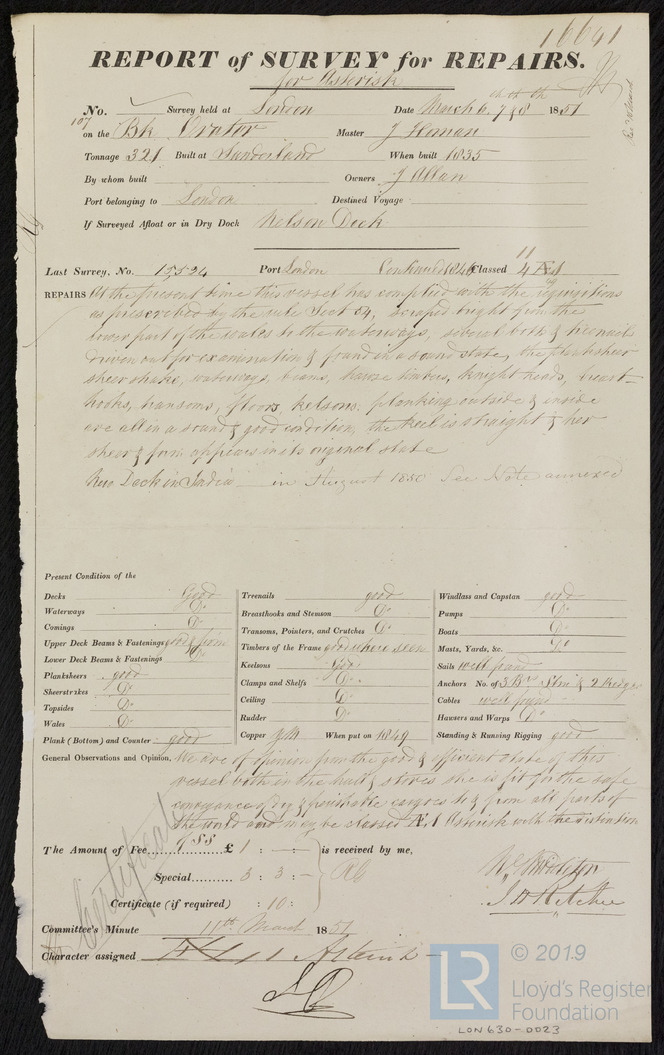 16641
REPORT of SURVEY for REPAIRS.
for Asterisk
No. Survey held at London Date March 6, 7 & 8 1851
107 on the Bk Orator Master J Homan
Tonnage 321 Built at Sunderland When built 1835
By whom built Owners J Allan
Port belonging to London Destined Voyage
If Surveyed Afloat or in Dry Dock Nelson Dock
Last Survey, No. 15524 Port London Continued 1846 Classed 11 4 Æ 1
REPAIRS At the present time this vessel has complied with the requisitions
as prescribed by the rule Sect 54, scraped bright from the
lower part of the wales to the waterways, several bolts & treenails
driven out for examination & found in a sound state, the planksheer
sheerstrakes, waterways, beams, hawse timbers, knight heads, breast-
hooks, transoms, floors, kelsons, planking outside & inside
are all in a sound & good condition, the keel is straight & her
sheer & form appears in its original state
New Deck in India in August 1850 See Note annexed
Present Condition of the
Decks Good
Waterways Do
Comings Do
Upper Deck Beams & Fastenings good & firm
Lower Deck Beams & Fastenings Do
Planksheers good
Sheerstrakes Do
Topsides Do
Wales Do
Plank (Bottom) and Counter good
Treenails good
Breasthooks and Stemson Do
Transoms, Pointers, and Crutches Do
Timbers of the Frame good where seen
Keelsons Good
Clamps and Shelfs Do
Ceiling Do
Rudder Do
Copper Y M When put on 1849
Windlass and Capstan good
Pumps Do
Boats Do
Masts, Yards, &c. Do
Sails well found
Anchors No. of 3 Brs Strm & 2 Kedges
Cables well found
Hawsers and Warps Do
Standing & Running Rigging good
General Observations and Opinion, We are of opinion from the good & efficient state of this
vessel both in the hull & stores she is fit for the safe
conveyance of dry & perishable cargoes to & from all parts of
the world and may be classed Æ 1 Asterisk with the distinction
of SS
The Amount of Fee £ 1 : — : — is received by me,
Special 3 : 3 : —
Certificate (if required) : 10 :
J D Ritchie
Certificate
Committee's Minute 11th March 1851
Character assigned Æ 1 Asterisk
LR
© 2019
Lloyd's Register
Foundation
LON630-0023